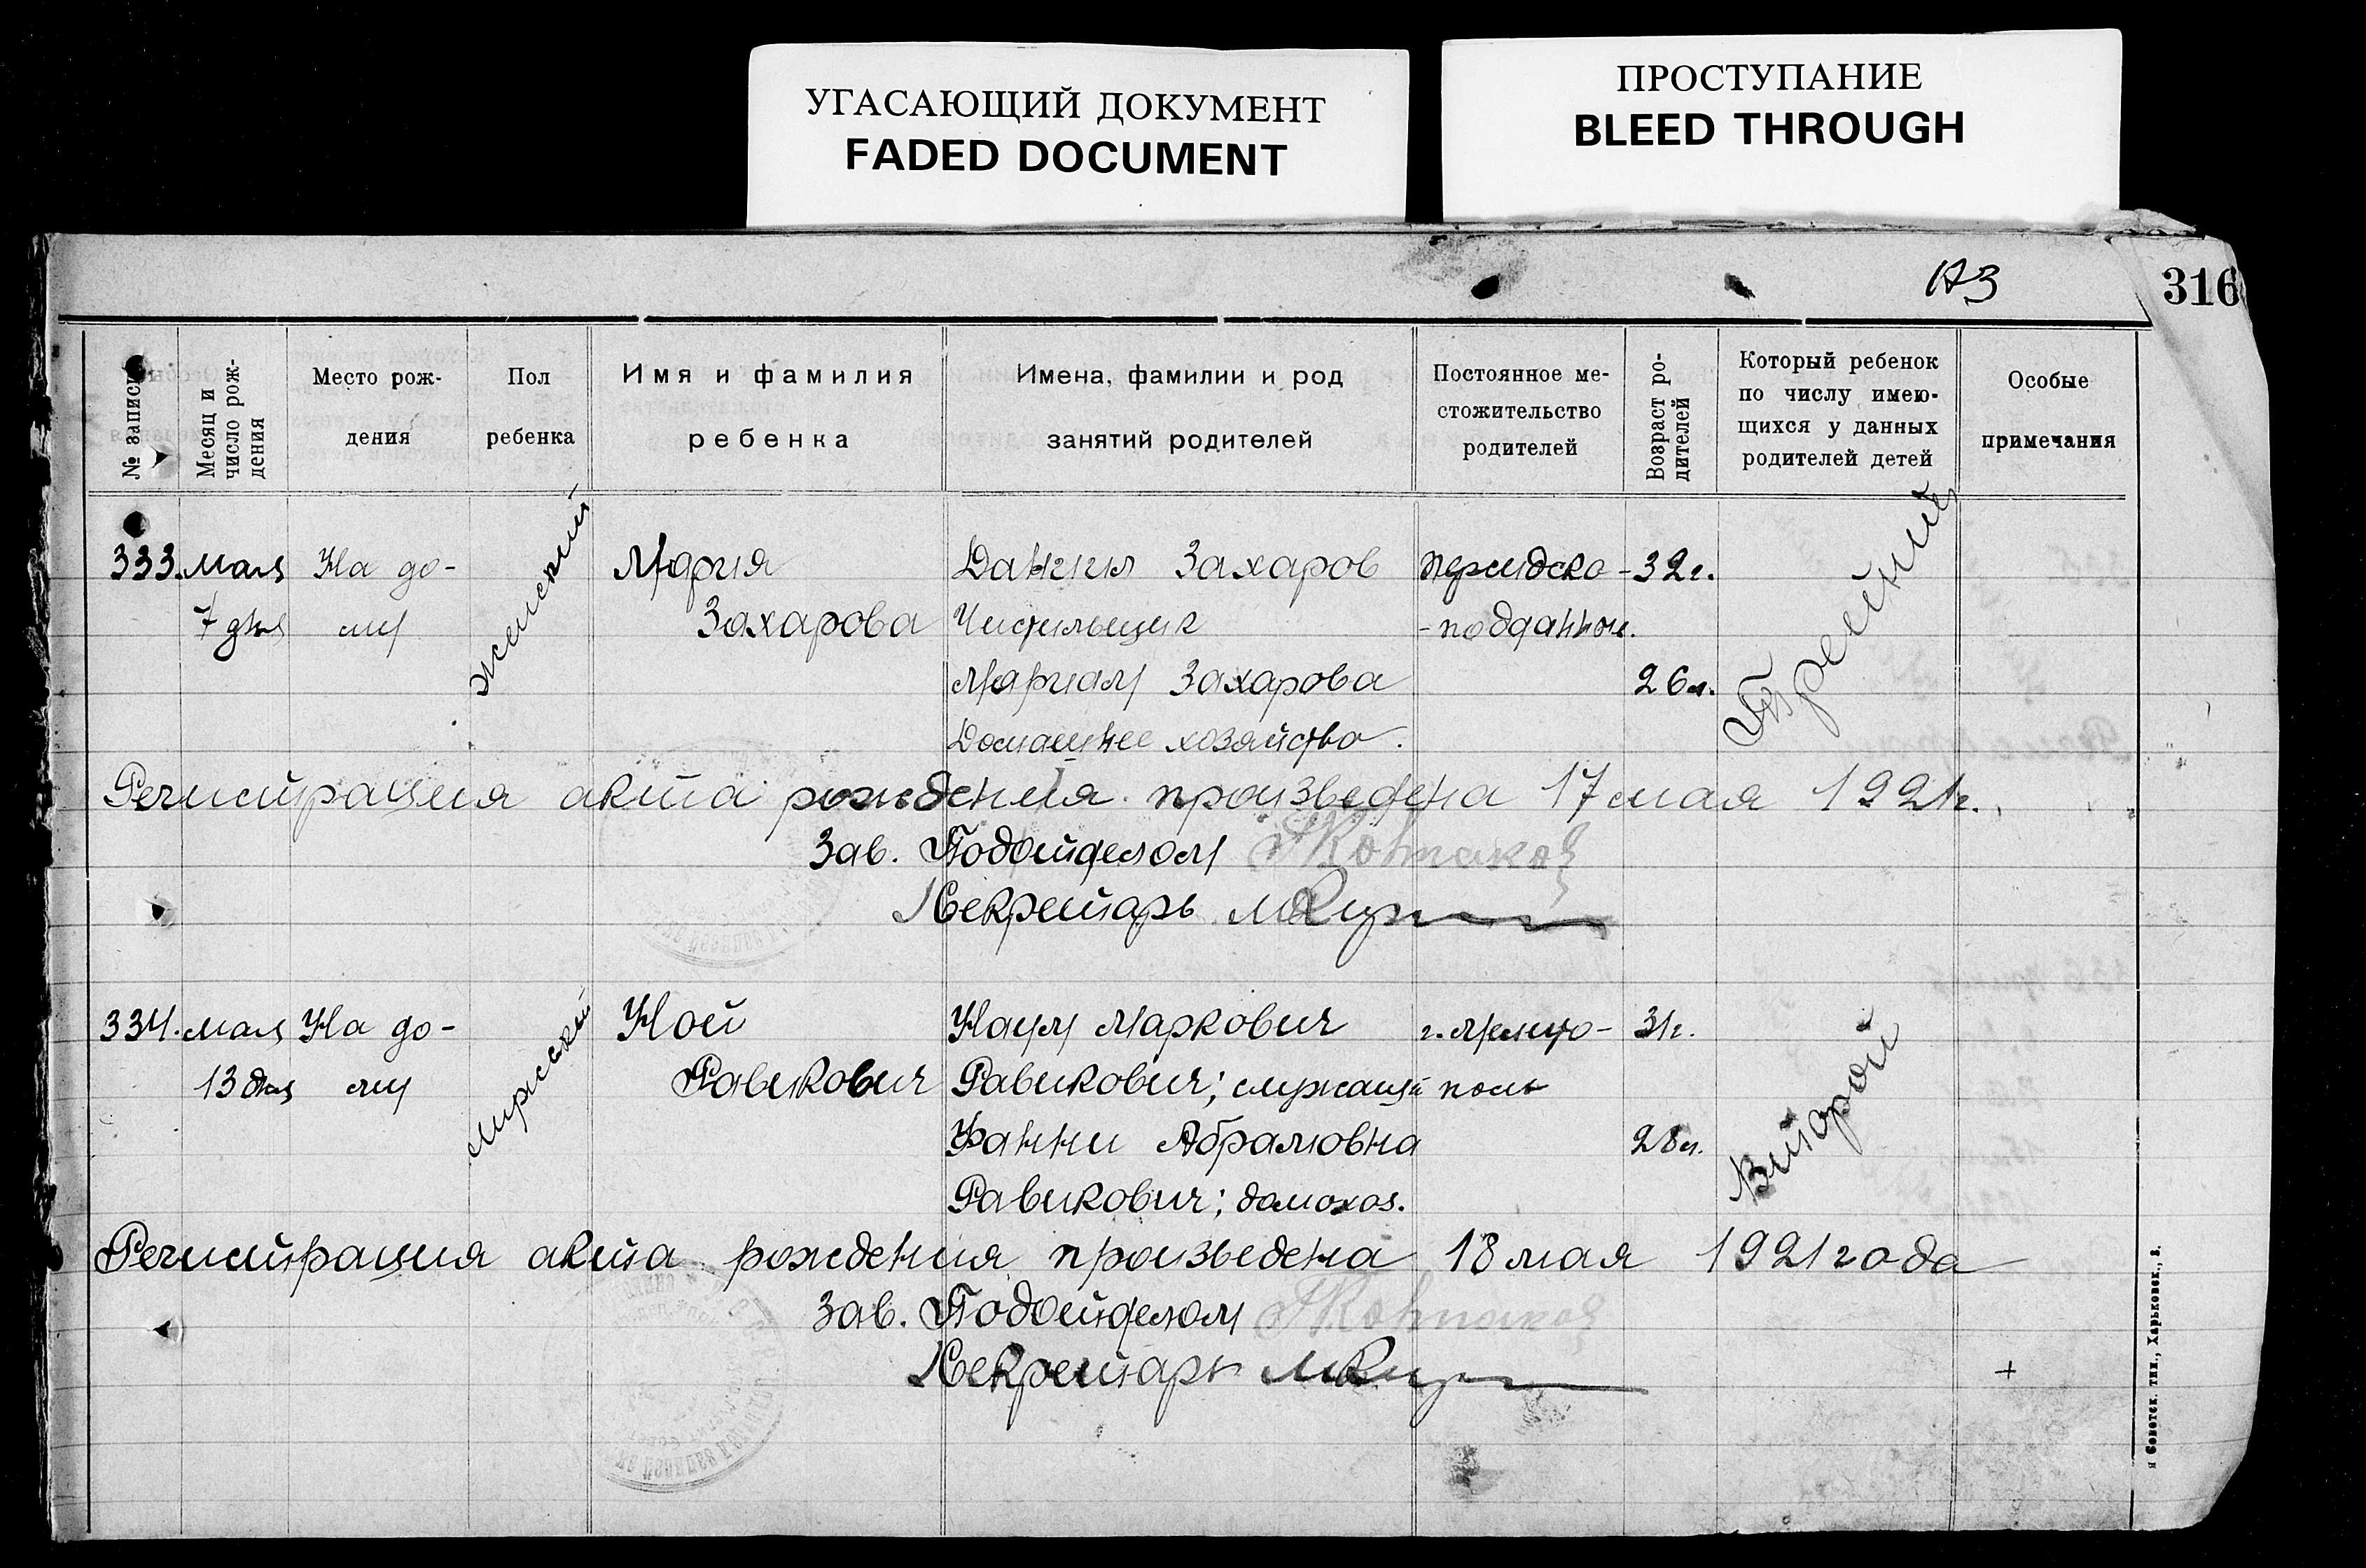 УГАСАЮЩИЙ ДОКУМЕНТ
FADED DOCUMENT
ПРОСТУПАНИЕ
BLEED THROUGH
316
№ записи
Месяц и число рождения
Место рож-
дения
Пол
ребенка
Имя и фамилия
ребенка
Имена, фамилии и род
занятий родителей
Постоянное ме-
стожительство
родителей
Возраст ро-
дителей
Который ребенок
по числу имею-
щихся у данных
родителей детей
Особые
примечания
333. мая На до- женский Мария Даниил Захаров персидско- 32 г. Третий
7 дня му Захарова Чистильщик -подданн.
Мариам Захарова 26 л.
Домашнее хозяйство.
Регистрация акта рождения произведена 17 мая 1921 г.
Зав. Подотделом
Секретарь
334. мая На до- мужской Ной Наум Маркович г. Мелито- 31 г. Второй
13 дня му Равикович Равикович; служащий поль
Фанни Абрамовна 28 л.
Равикович; домохоз.
Регистрация акта рождения произведена 18 мая 1921 года
Зав. Подотделом
Секретарь
+
я Советск. тип., Харьковск., 8.